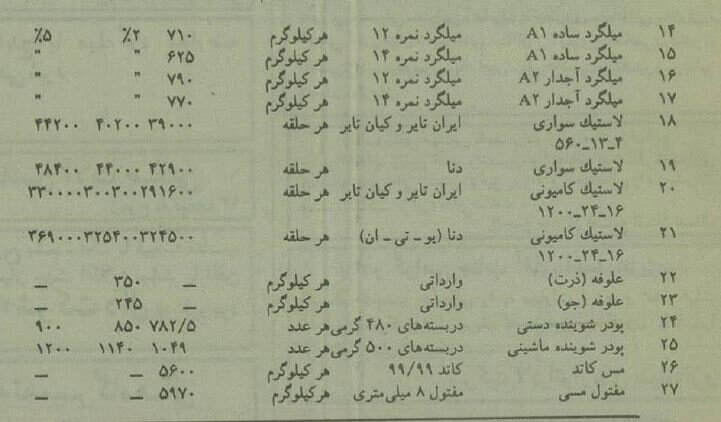 ۱۴ میلگرد ساده A۱ میلگرد نمره ۱۲ هرکیلوگرم ۷۱۰ ۲٪ ۵٪
۱۵ میلگرد ساده A۱ میلگرد نمره ۱۴ هر کیلوگرم ۶۲۵ " "
۱۶ میلگرد آجدار A۲ میلگرد نمره ۱۲ هر کیلوگرم ۷۹۰ " "
۱۷ میلگرد آجدار A۲ میلگرد نمره ۱۴ هر کیلوگرم ۷۷۰ " "
۱۸ لاستیك سواری ایران تایر و کیان تایر هر حلقه ۳۹۰۰۰ ۴۰۲۰۰ ۴۴۲۰۰
۵۶۰_۱۳_۴
۱۹ لاستیك سواری دنا هر حلقه ۴۲۹۰۰ ۴۴۰۰۰ ۴۸۴۰۰
۲۰ لاستیك کامیونی ایران تایر و کیان تایر هر حلقه ۲۹۱۶۰۰ ۳۰۰۳۰۰ ۳۳۰۰۰۰
۱۲۰۰_۲۴_۱۶
۲۱ لاستیك کامیونی دنا (یو - تی - ان) هر حلقه ۳۲۴۵۰۰ ۳۲۵۴۰۰ ۳۶۹۰۰۰
۱۲۰۰_۲۴_۱۶
۲۲ علوفه (ذرت) وارداتی هر کیلوگرم _ ۳۵۰ _
۲۳ علوفه (جو) وارداتی هر کیلوگرم _ ۲۴۵ _
۲۴ پودر شوینده دستی دربسته‌های ۴۸۰ گرمی هر عدد ۷۸۲/۵ ۸۵۰ ۹۰۰
۲۵ پودر شوینده ماشینی دربسته‌های ۵۰۰ گرمی هر عدد ۱۰۴۹ ۱۱۴۰ ۱۲۰۰
۲۶ مس کاتد کاتد ۹۹/۹۹ هر کیلوگرم ۵۶۰۰ _ _
۲۷ مفتول مسی مفتول ۸ میلی‌متری هرکیلوگرم ۵۹۷۰ _ _